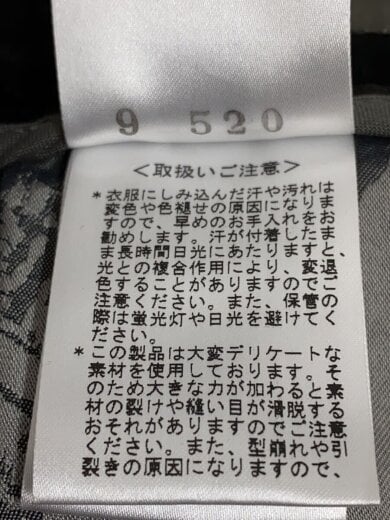 9 520
<取扱いご注意>
*衣服にしみ込んだ汗や汚れは
変色や色褪せの原因になりま
すので、早めのお手入れをお
勧めします。汗が付着したま
ま長時間日光にあたりますと、
光との複合作用により、変退
色することがありますのでご
注意ください。また、保管の
際は蛍光灯や日光を避けてく
ださい。
*この製品は大変デリケートな
素材を使用しております。そ
のため大きな力が加わると素
材の裂けや縫い目が滑脱する
おそれがありますのでご注意
ください。また、型崩れや引
裂きの原因になりますので、